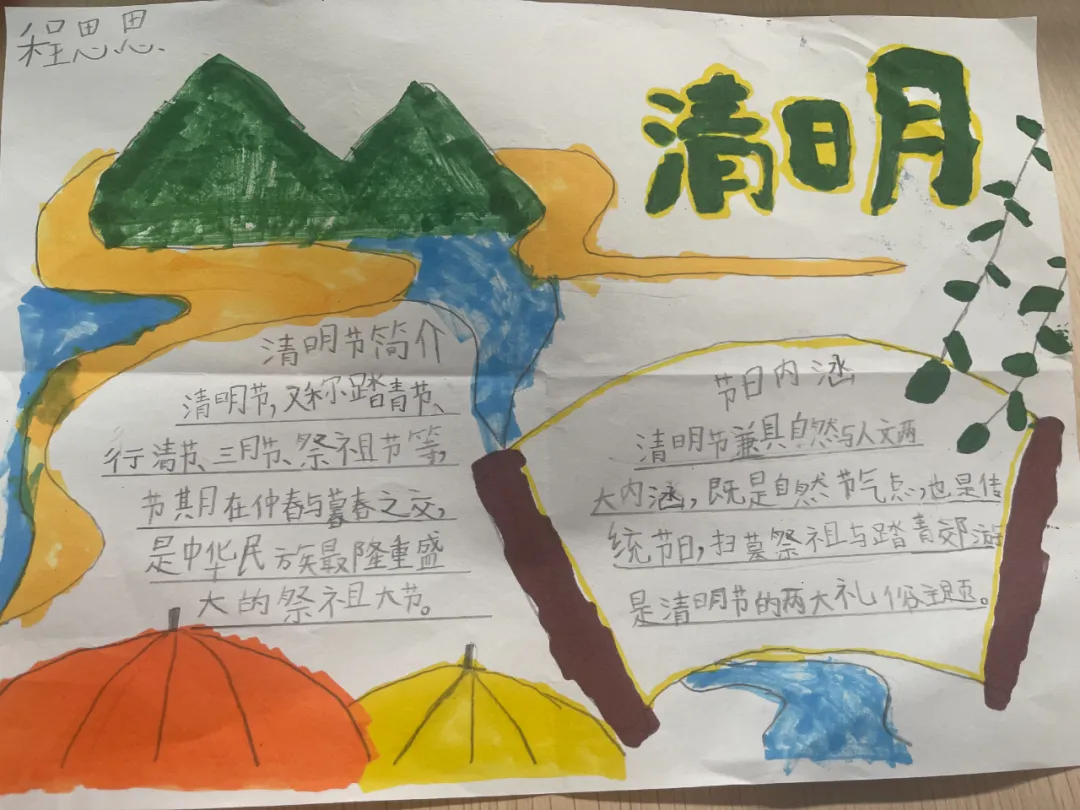 程思思
清明
清明节简介
清明节,又称踏青节、
行清节、三月节、祭祖节等,
节期月在仲春与暮春之交,
是中华民族最隆重盛
大的祭祖大节。
节日内涵
清明节兼具自然与人文两
大内涵,既是自然节气点,也是传
统节日,扫墓祭祖与踏青郊游
是清明节的两大礼俗主题。